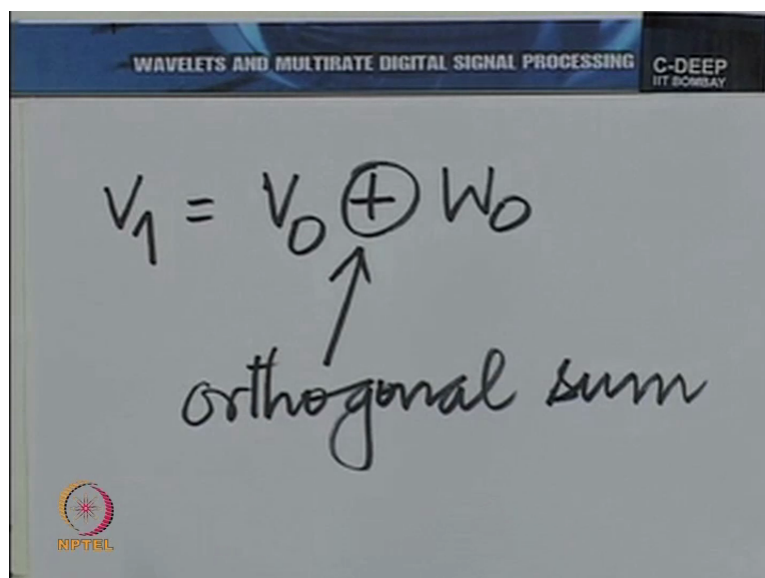 WAVELETS AND MULTIRATE DIGITAL SIGNAL PROCESSING
C-DEEP
IIT BOMBAY
V₁ = V₀ ⊕ W₀
orthogonal sum
NPTEL